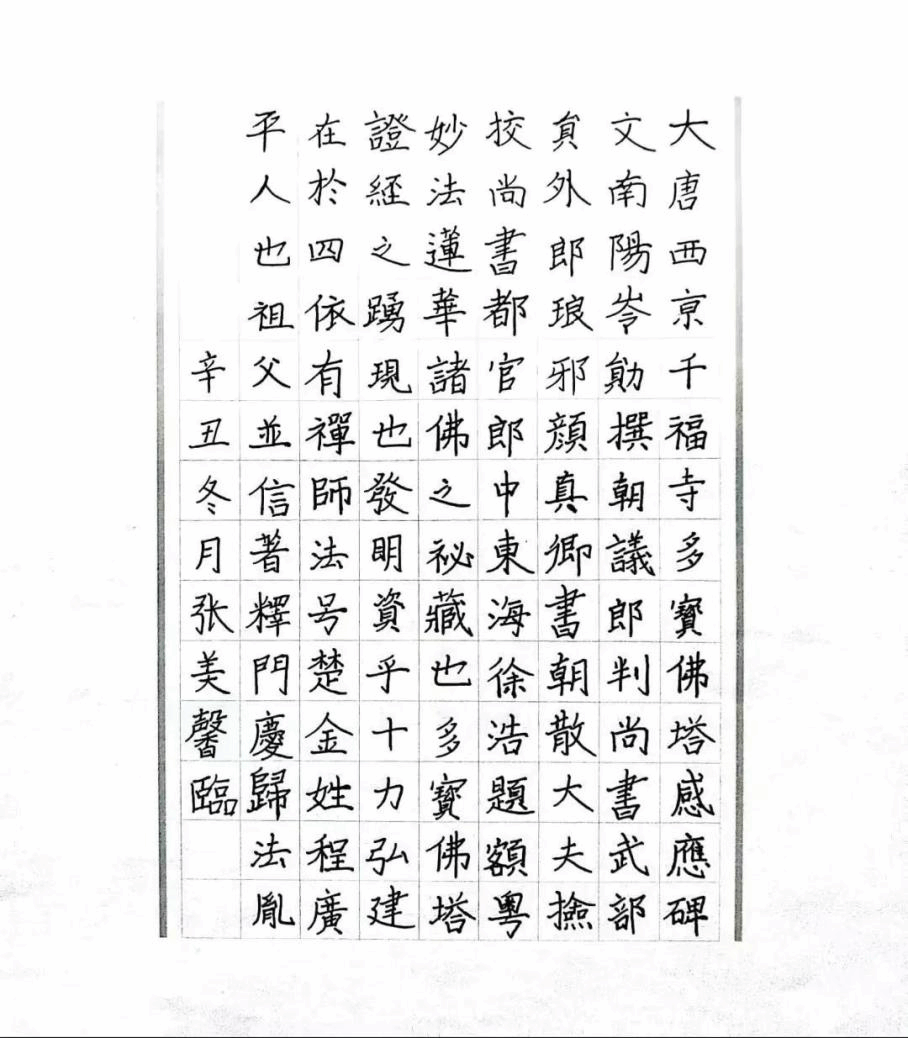 大唐西京千福寺多寶佛塔感應碑
文南陽岑勛撰朝議郎判尚書武部
員外郎琅邪顏真卿書朝散大夫撿
挍尚書都官郎中東海徐浩題額粵
妙法蓮華諸佛之祕藏也多寶佛塔
證經之踴現也發明資乎十力弘建
在於四依有禪師法号楚金姓程廣
平人也祖父並信著釋門慶歸法胤
辛丑冬月张美馨臨